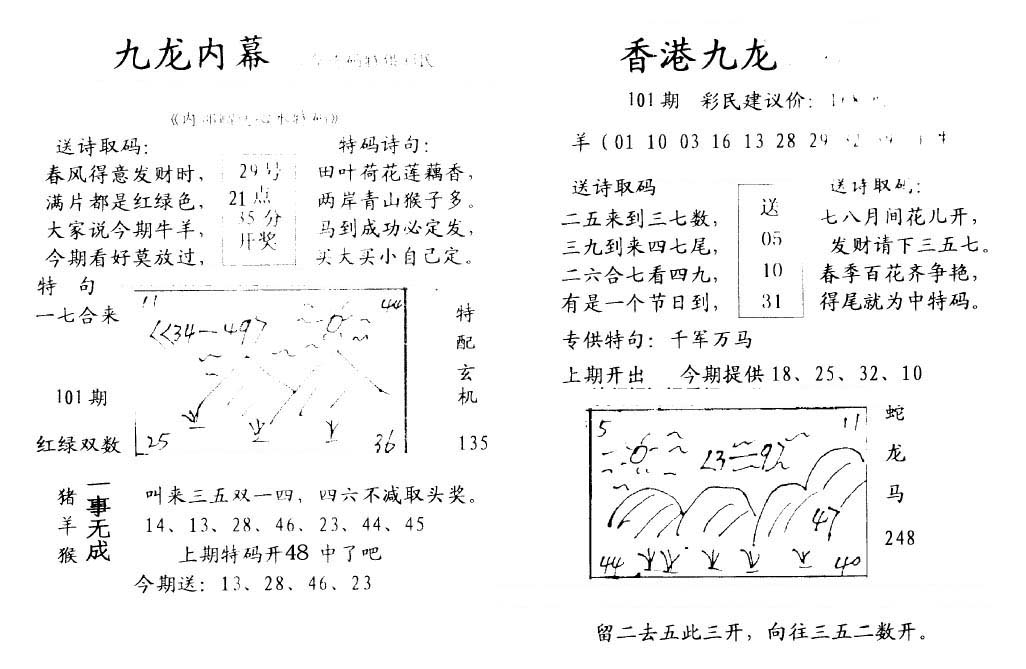 九龙内幕
送诗取码：
春风得意发财时，
满片都是红绿色，
大家说今期牛羊，
今期看好莫放过，
29号
21点
35分
开奖
特码诗句：
田叶荷花莲藕香，
两岸青山猴子多。
马到成功必定发，
买大买小自己定。
特 句
一七合来
101期
红绿双数
11 44
34—49
25 36
特
配
玄
机
135
猪
羊
猴
一事无成
叫来三五双一四，四六不减取头奖。
14、13、28、46、23、44、45
上期特码开48中了吧
今期送：13、28、46、23
香港九龙
101期 彩民建议价：
羊（01 10 03 16 13 28 29
送诗取码
二五来到三七数，
三九到来四七尾，
二六合七看四九，
有是一个节日到，
送
05
10
31
送诗取码：
七八月间花儿开，
发财请下三五七。
春季百花齐争艳，
得尾就为中特码。
专供特句：千军万马
上期开出 今期提供18、25、32、10
5 11
47
44 40
蛇
龙
马
248
留二去五此三开，向往三五二数开。